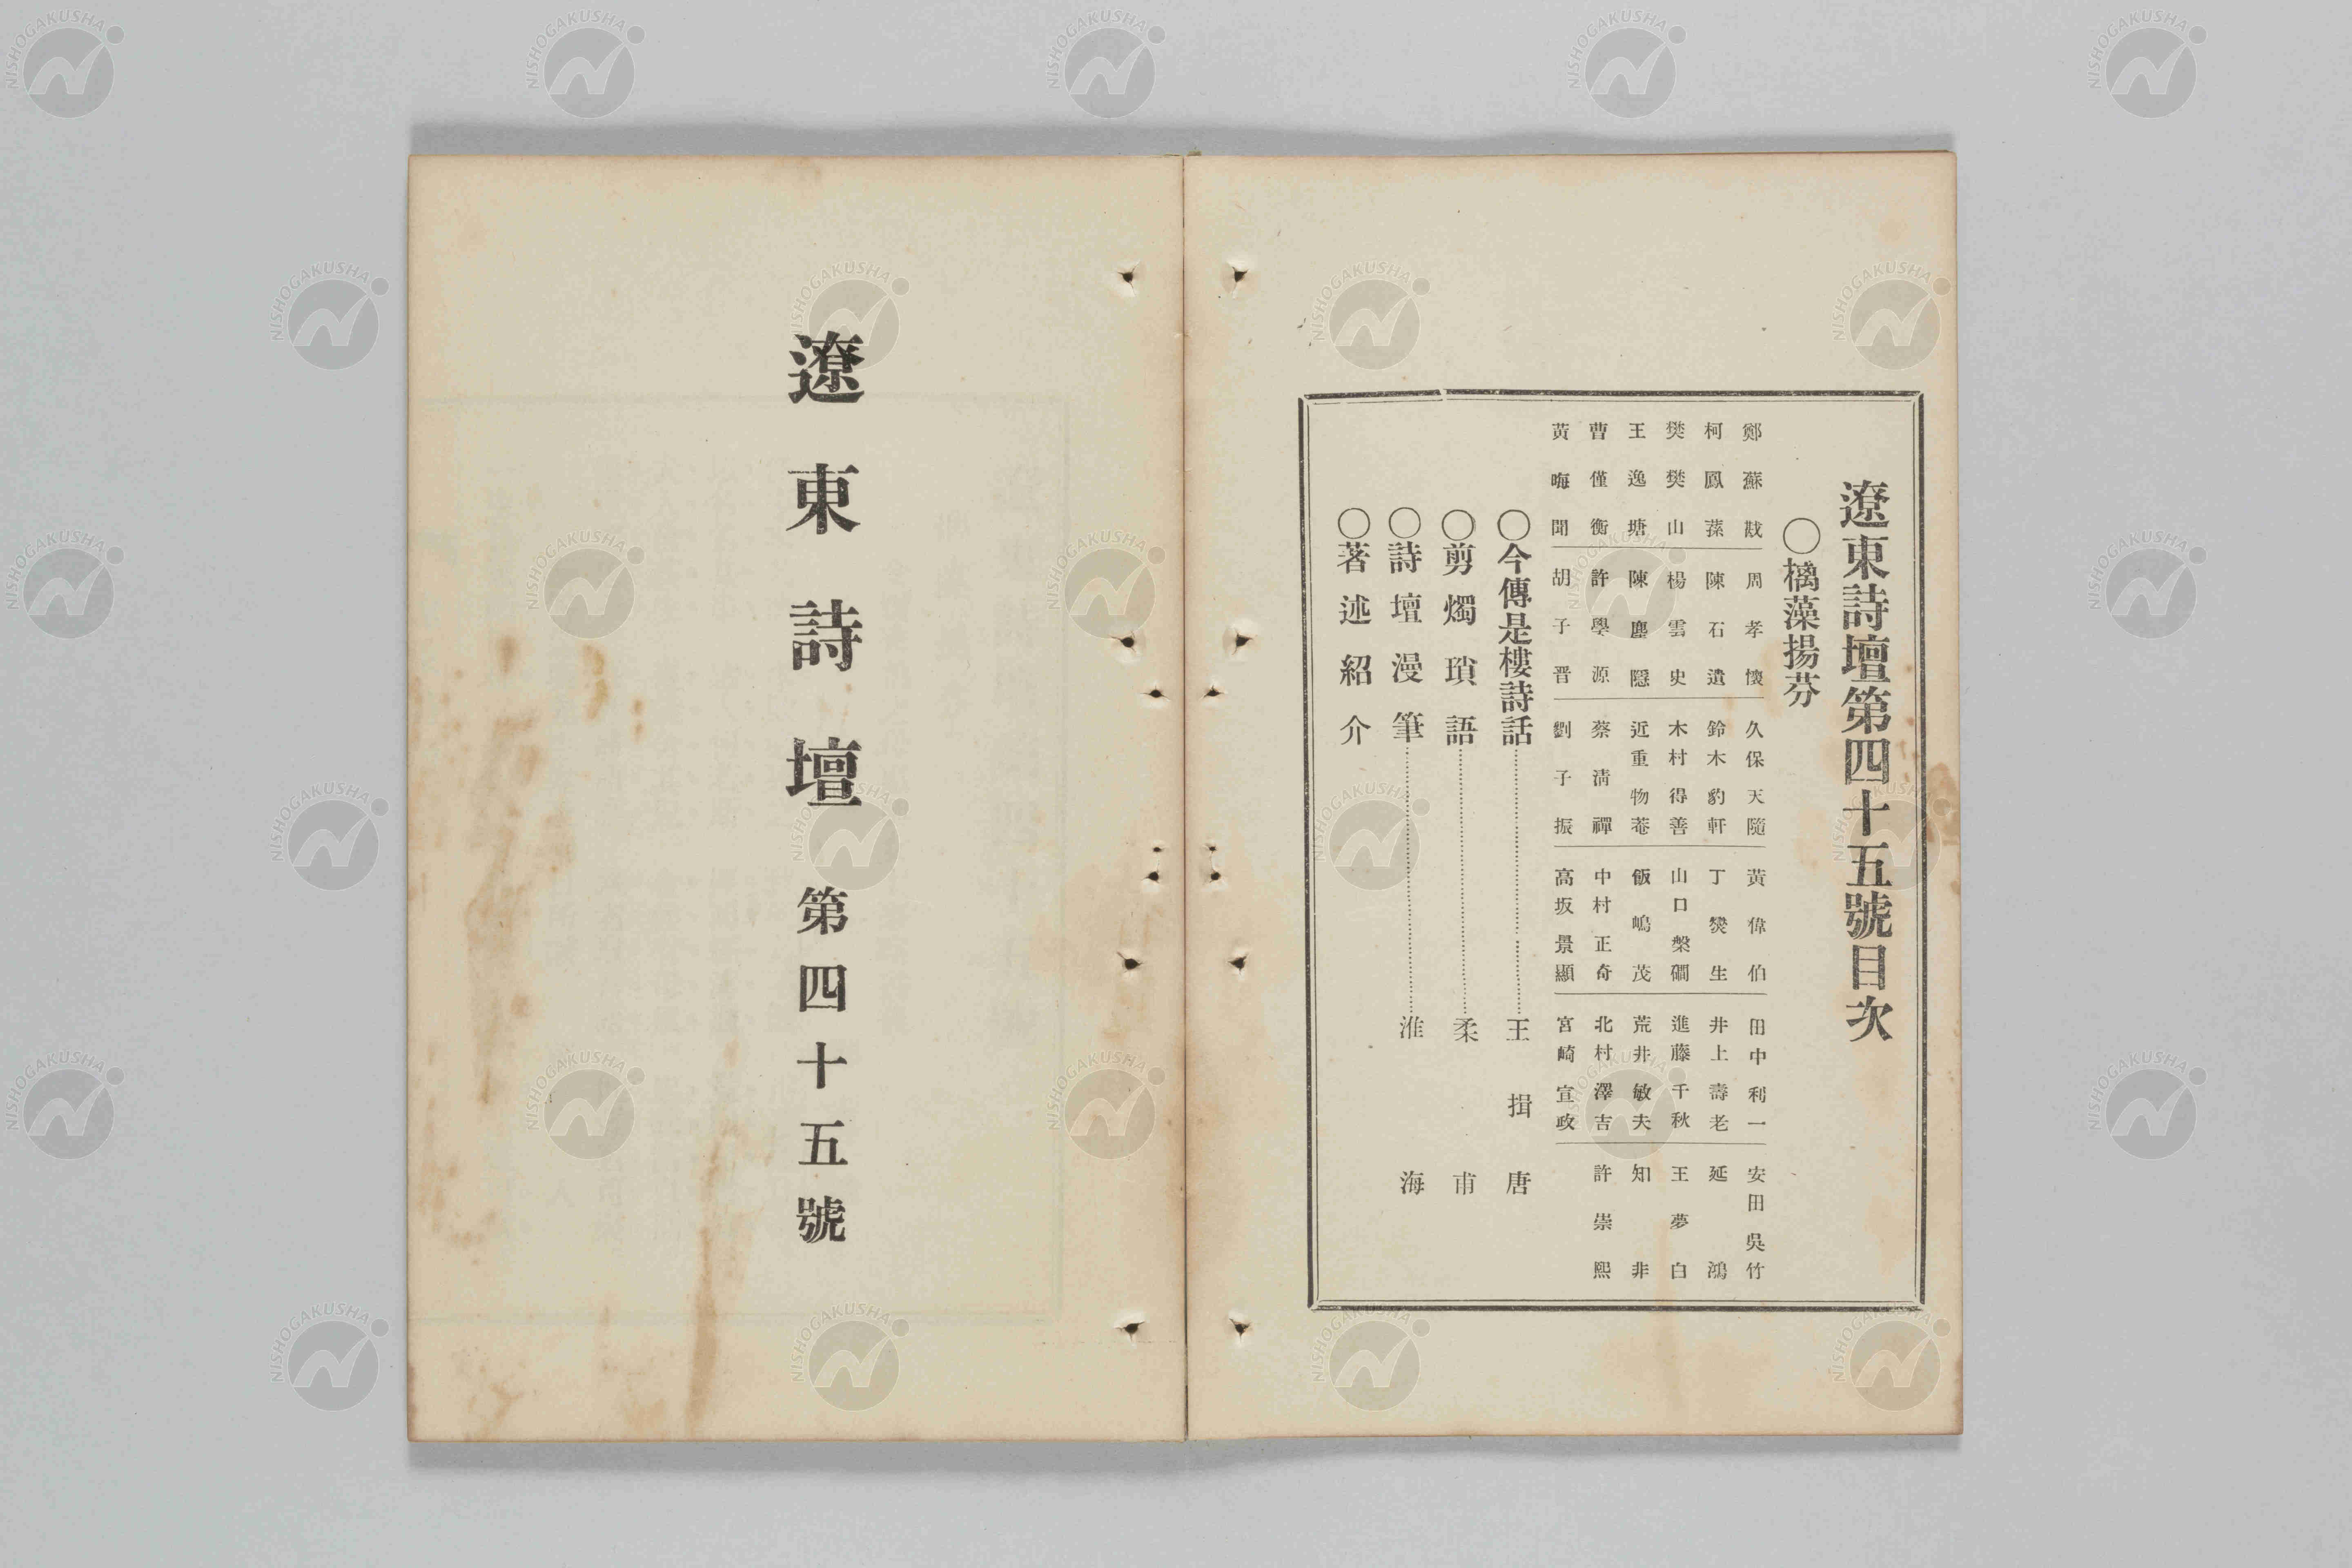 遼東詩壇第四十五號目次
○樆藻揚芬
鄭蘇戡 周孝懷 久保天隨 黃偉伯 田中利一 安田吳竹
柯鳳蓀 陳石遺 鈴木豹軒 丁燮生 井上壽老 延鴻
樊樊山 楊雲史 木村得善 山口槃磵 進藤千秋 王夢白
王逸塘 陳塵隱 近重物菴 飯嶋茂 荒井敏夫 知非
曹僅衡 許學源 蔡淸禪 中村正奇 北村澤吉 許崇熙
黃晦聞 胡子晋 劉子振 高坂景顯 宮崎宣政
○今傳是樓詩話………王揖唐
○剪燭瑣語………柔甫
○詩壇漫筆………淮海
○著述紹介
遼東詩壇 第四十五號
NISHOGAKUSHA